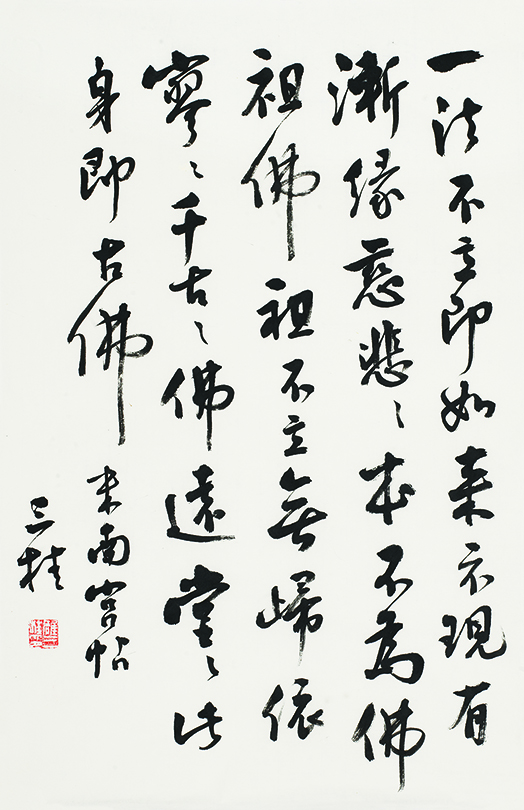 一法不立即如来示現有
漸緣慈悲〻本不為佛
祖佛祖不立無歸依
寥〻千古〻佛遠堂〻此
身即古佛 米南宮帖
三桂